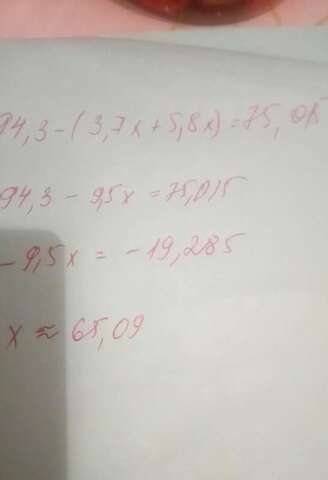 94,3-(3,7x+5,8x)=75,015
94,3-9,5x=75,015
-9,5x=-19,285
x≈65,09